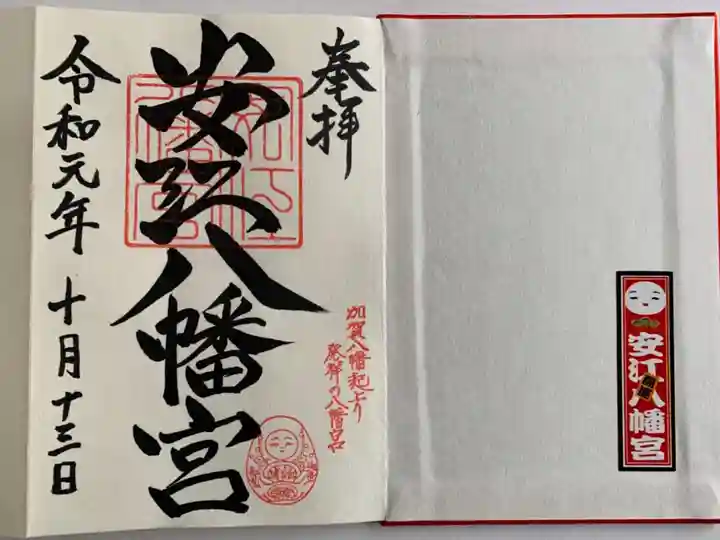 奉拝
安江八幡宮
加賀八幡起上り
発祥の八幡宮
令和元年 十月十三日
安江八幡宮